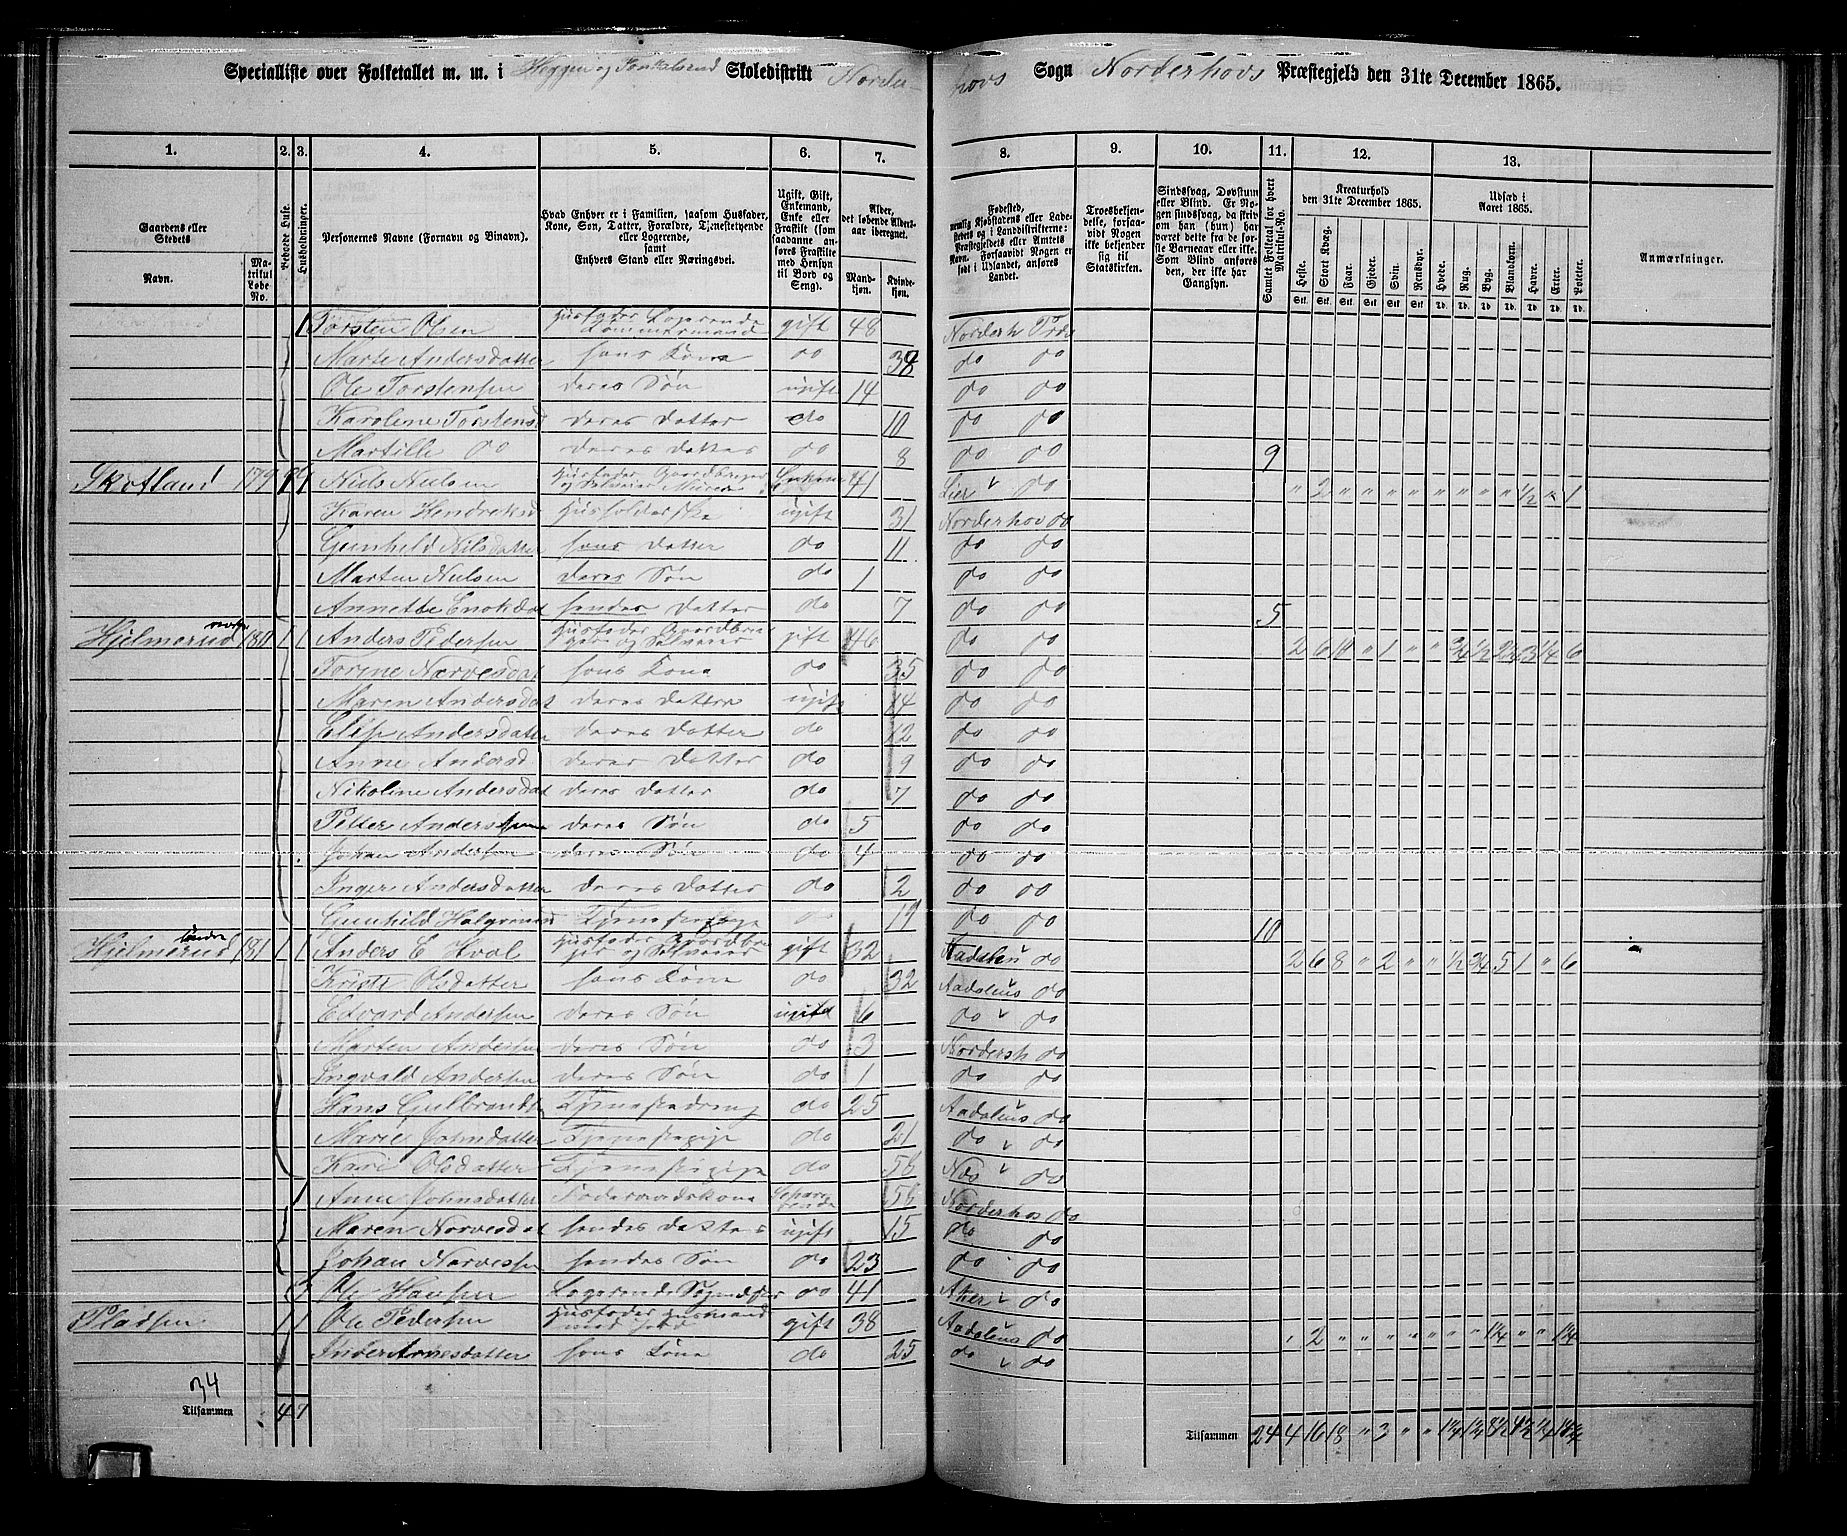 Specialliste over Folketallet m. m. i Heggen og Skoledistrikt Norder-
hovs Sogn Norderhovs Præstegjeld den 31te December 1865.
1. 2. 3. 4. 5. 6. 7. 8. 9. 10. 11. 12. 13.
Gaardens eller Stedets Navn. Matrikul Løbe No. Beboede Huse. Husholdninger. Personernes Navne (Fornavn og Binavn).
Hvad Enhver er i Familien, saasom Husfader, Kone, Søn, Datter, Forældre, Tjenestetyende eller Logerende, samt Enhvers Stand eller Næringsvei.
Ugift, Gift, Enkemand, Enke eller Fraskilt (som saadanne anføres Fraskilte med Hensyn til Bord og Seng).
Alder, det løbende Aldersaar iberegnet. Mandkjøn. Kvindekjøn.
Troesbekjendelse, forsaavidt Nogen ikke bekjender sig til Statskirken.
Sindssvag, Døvstum eller Blind. Er Nogen sindssvag, da skriv om han (hun) har været dette fra de første Barneaar eller ikke. Som Blind anføres den, der ikke har Gangsyn.
Samlet Folketal for hvert Matrikul-No.
Kreaturhold den 31te December 1865. Heste. Stort Kvæg. Faar. Gjeder. Svin. Rensdyr.
Udsæd i Aaret 1865. Hvede. Rug. Byg. Blandkorn. Havre. Erter. Poteter.
Anmærkninger.
1 Torsten Olsen Husfader Logerende Tømmermand gift 48 Norderh Præs
Marte Andersdatter hans Kone do 38 do do
Ole Torstensen deres Søn ugift 14 do do
Karoline Torstensd deres Datter do 10 do do
Martille do deres Datter do 8 do do 9
Skotland 179 1 1 Niels Nielsen Husfader Gaardbruger og Selveier 41 Lier do " 2 " " " " " " " " 1/2 " 1
Karen Hendriksd Husholderske ugift 31 Norderhov do
Gunhild Nilsdatter hans Datter do 11 do do
Marten Nielsen deres Søn do 1 do do
Annette Enoksdat hendes Datter do 7 do do 5
Hjelmerud 180 1 1 Anders Pedersen Husfader Gaardbruger og Selveier gift 46 do do
Torine Narvesdat hans Kone do 35 do do
Maren Andersdat deres Datter ugift 14 do do
Elise Andersdatter deres Datter do 12 do do
Anne Andersd deres Datter do 9 do do
Nikoline Andersdat deres Datter do 7 do do
Petter Andersen deres Søn do 5 do do
Johan Andersen deres Søn do 4 do do
Inger Andersdatter deres Datter do 2 do do
Gunhild Tjenestepige do 19 do do 10
Hjelmerud søndre 181 1 1 Anders E Hval Husfader Gaardbruger og Selveier gift 32 Aadalen do 2 6 8 " 2 " " 1/2 3/4 5 1 " 6
Kristi Olsdatter hans Kone do 32 Aadalens do
Edvard Andersen deres Søn ugift 6 do do
Marten Andersen deres Søn do 3 Norderh do
Ingvald Andersen deres Søn do 1 do do
Hans Gulbrandsen Tjenestedreng do 25 Aadalens do
Marie Johnsdatter Tjenestepige do 21 do do
Kari Olsdatter Tjenestepige do 56 Næs do
1 Anne Johnsdatter Føderaadskone 56 Norderhov do
Maren Narvesdat hendes Datter ugift 15 do do
Johan Narvesen hendes Søn do 23 do do
Ole Hansen Logerende do 41 Aker do
Pladsen 1 1 Ole Pedersen Husfader Husmand med Jord gift 38 Aadalens do
Andersdatter hans Kone do 25 do do
34
Tilsammen 4 7
Tilsammen 24 4 16 18 " 3 " "